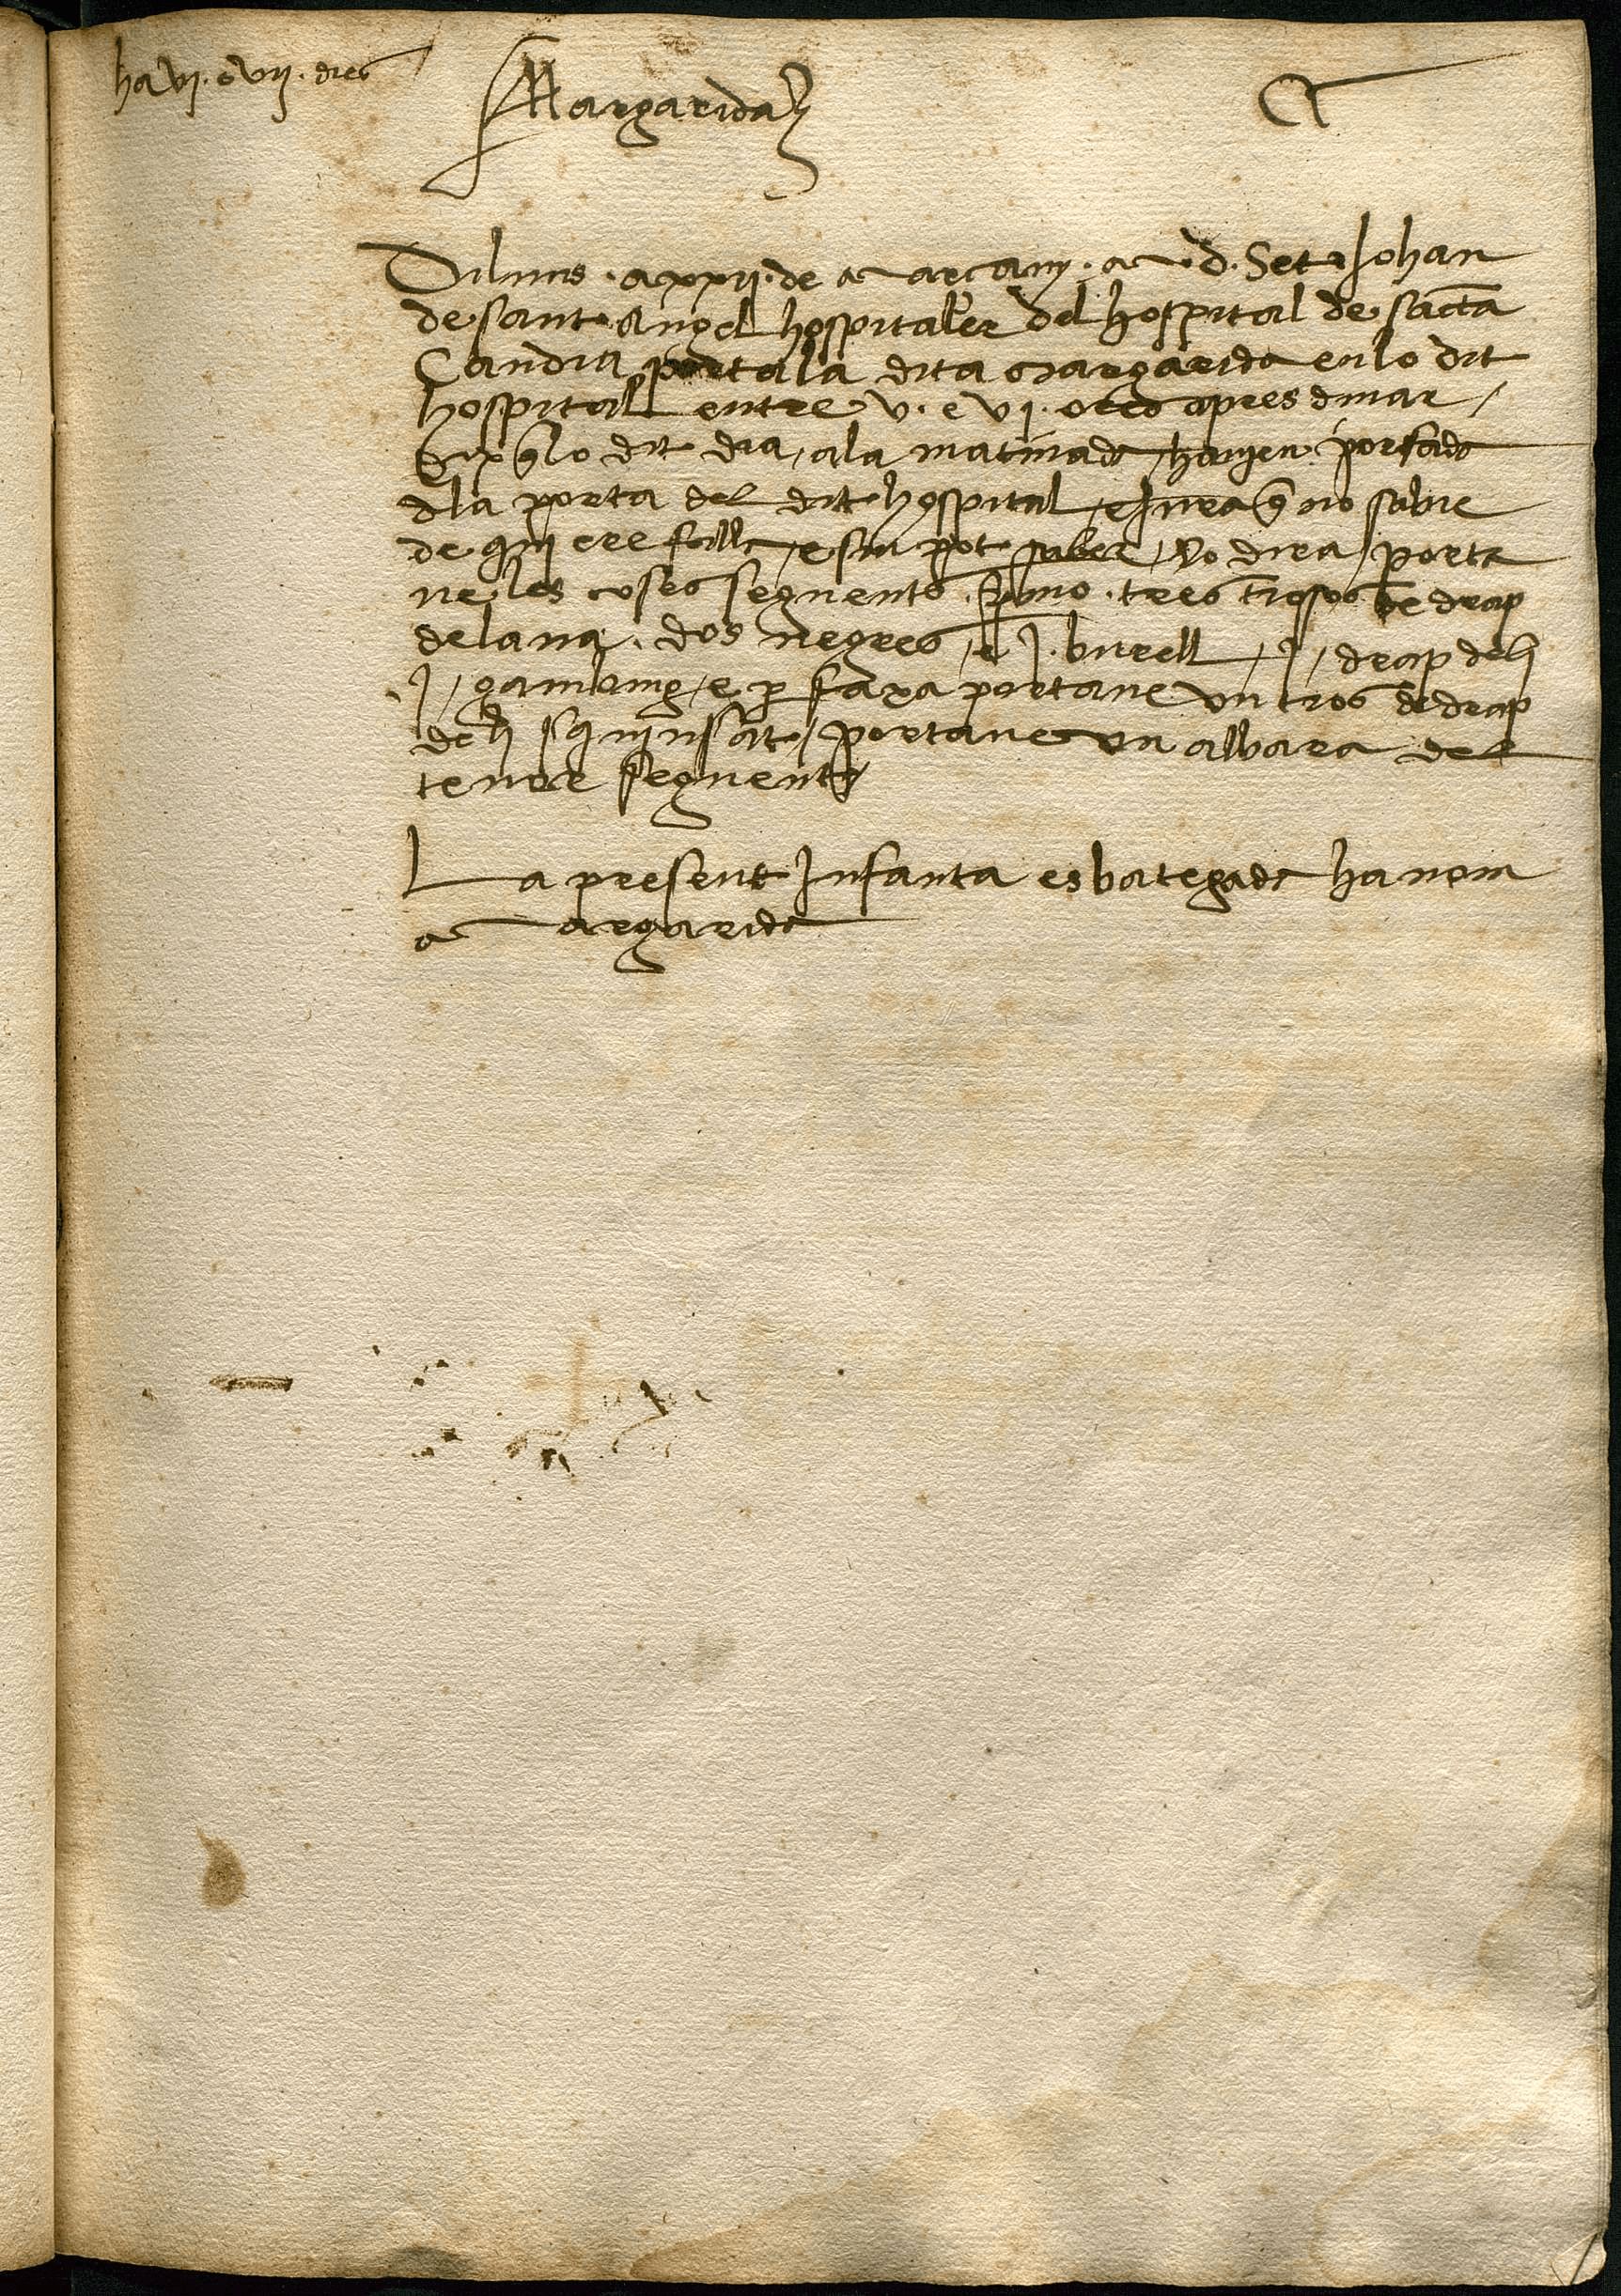 ha vj. o vij. dies
Margarida
Diluns . a xxij. de Març any . M . d . Set Johan
de sant Angel hospitaler del hospital de sancta
Candia porta la dita Margarida en lo dit
hospital entre v. e vj. ores apres dinar /
dix q̃ lo dit dia / a la matinada / havien portada
d la porta del dit hospital / e jura q̃ no sabie
de qui ere filla / e sin pot saber / ho dira / porta
ve les coses seguents . pº . tres trossos de drap
de lana . dos negres / e j . burell / j / drap de li
j / gamboing / e p faxa portave un tros de drap
de li squinsat / portave un albara del
tenor seguent
La present Infanta es bategada ha nom
Margarida